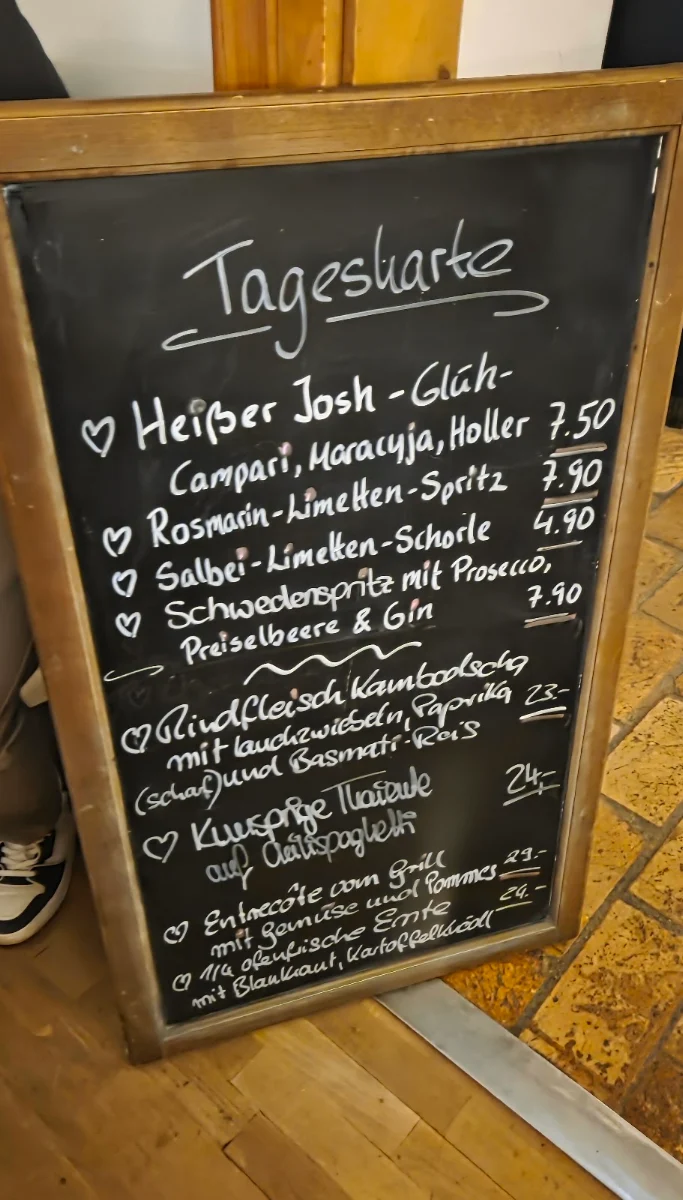 Tageskarte
Heißer Josh - Glüh-
Campari, Maracuja, Holler 7.50
Rosmarin-Limetten-Spritz 7.90
Salbei-Limetten-Schorle 4.90
Schwedenspritz mit Prosecco,
Preiselbeere & Gin 7.90
Rindfleisch Kambodscha
mit Lauchzwiebeln, Paprika 23.-
(scharf) und Basmati-Reis
Knusprige Thaiente 24,-
auf Chilispaghetti
Entrecôte vom Grill 29.-
mit Gemüse und Pommes
1/4 ofenfrische Ente 24.-
mit Blaukraut, Kartoffelknödl